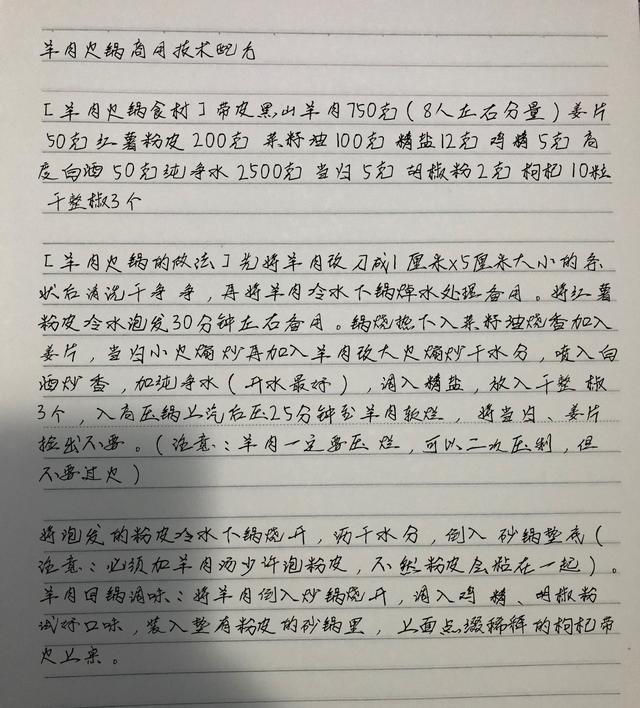 羊肉火锅商用技术配方
[羊肉火锅食材]带皮黑山羊肉750克(8人左右分量)姜片
50克红薯粉皮200克 菜籽油100克 精盐12克 鸡精5克 高
度白酒50克纯净水2500克 当归5克 胡椒粉2克 枸杞10粒
干整椒3个
[羊肉火锅的做法]先将羊肉改刀成1厘米x5厘米大小的条
状后清洗干净净,再将羊肉冷水下锅焯水处理备用。将红薯
粉皮冷水泡发30分钟左右备用。锅烧热下入菜籽油烧香加入
姜片,当归小火煸炒再加入羊肉改大火煸炒干水分,喷入白
酒炒香,加纯净水(开水最好),调入精盐,放入干整椒
3个,入高压锅上汽后压25分钟至羊肉软烂,将当归、姜片
捡出不要。(注意:羊肉一定要压烂,可以二次压制,但
不要过火)
将泡发的粉皮冷水下锅烧开,沥干水分,倒入砂锅垫底(
注意:必须加羊肉汤少许泡粉皮,不然粉皮会粘在一起)。
羊肉回锅调味:将羊肉倒入炒锅烧开,调入鸡精、胡椒粉
试好口味,装入垫有粉皮的砂锅里,上面点缀稀释的枸杞带
火上桌。